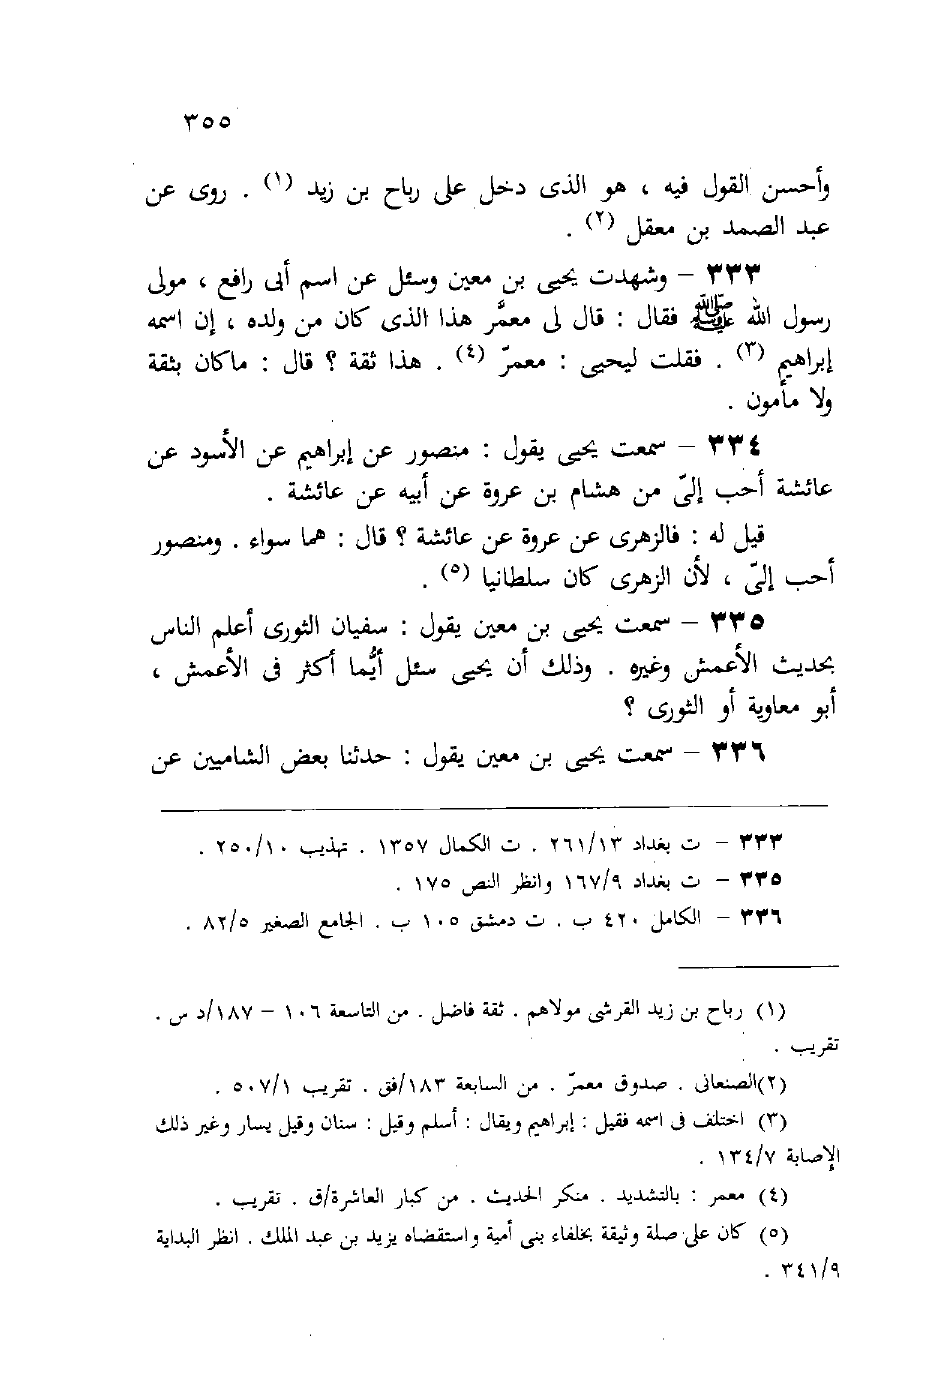 ٣٥٥
وأحسن القول فيه ، هو الذى دخل على رباح بن زيد (١) . روى عن
عبد الصمد بن معقل (٢) .
٣٣٣ – وشهدت يحيى بن معين وسئل عن اسم أبى رافع ، مولى
رسول الله ﷺ فقال : قال لى معمَّر هذا الذى كان من ولده ، إن اسمه
إبراهيم (٣) . فقلت ليحيى : معمرّ (٤) . هذا ثقة ؟ قال : ماكان بثقة
ولا مأمون .
٣٣٤ – سمعت يحيى يقول : منصور عن إبراهيم عن الأسود عن
عائشة أحب إلىّ من هشام بن عروة عن أبيه عن عائشة .
قيل له : فالزهرى عن عروة عن عائشة ؟ قال : هما سواء . ومنصور
أحب إلىّ ، لأن الزهرى كان سلطانيا (٥) .
٣٣٥ – سمعت يحيى بن معين يقول : سفيان الثورى أعلم الناس
بحديث الأعمش وغيره . وذلك أن يحيى سئل أيُّما أكثر فى الأعمش ،
أبو معاوية أو الثورى ؟
٣٣٦ – سمعت يحيى بن معين يقول : حدثنا بعض الشاميين عن
٣٣٣ – ت بغداد ٢٦١/١٣ . ت الكمال ١٣٥٧ . تهذيب ٢٥٠/١٠ .
٣٣٥ – ت بغداد ١٦٧/٩ وانظر النص ١٧٥ .
٣٣٦ – الكامل ٤٢٠ ب . ت دمشق ١٠٥ ب . الجامع الصغير ٨٢/٥ .
(١) رباح بن زيد القرشى مولاهم . ثقة فاضل . من التاسعة ١٠٦ – ١٨٧/د س .
تقريب .
(٢)الصنعانى . صدوق معمرّ . من السابعة ١٨٣/فق . تقريب ٥٠٧/١ .
(٣) اختلف فى اسمه فقيل : إبراهيم ويقال : أسلم وقيل : سنان وقيل يسار وغير ذلك
الإصابة ١٣٤/٧ .
(٤) معمر : بالتشديد . منكر الحديث . من كبار العاشرة/ق . تقريب .
(٥) كان على صلة وثيقة بخلفاء بنى أمية واستقضاه يزيد بن عبد الملك . انظر البداية
٣٤١/٩ .